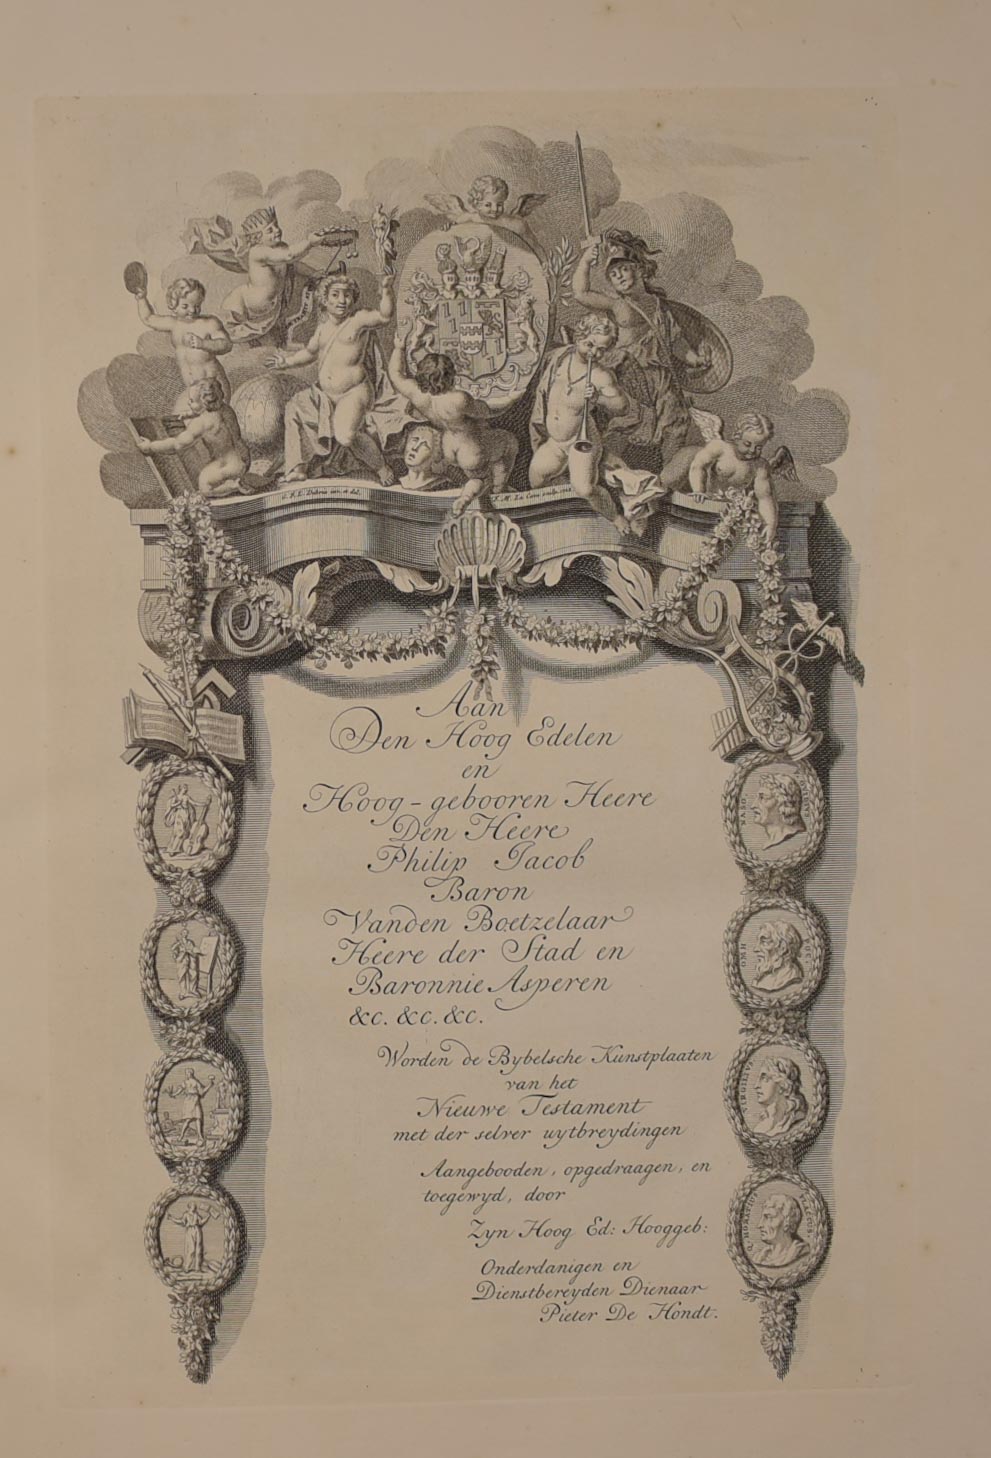 L. F. D. Bourg inv. et del.
Aan
Den Hoog Edelen
en
Hoog-gebooren Heere
Den Heere
Philip Jacob
Baron
Vanden Boetzelaar
Heere der Stad en
Baronnie Asperen
&c. &c. &c.
Worden de Bybelsche Kunstplaaten
van het
Nieuwe Testament
met der selver uytbreydingen
Aangebooden, opgedraagen, en
toegewyd, door
Zyn Hoog Ed: Hooggeb:
Onderdanigen en
Dienstbereyden Dienaar
Pieter De Hondt.
NASO.
OMH
ROC.
VIRGILIVS
Q. HORATIVS
FLACCVS.